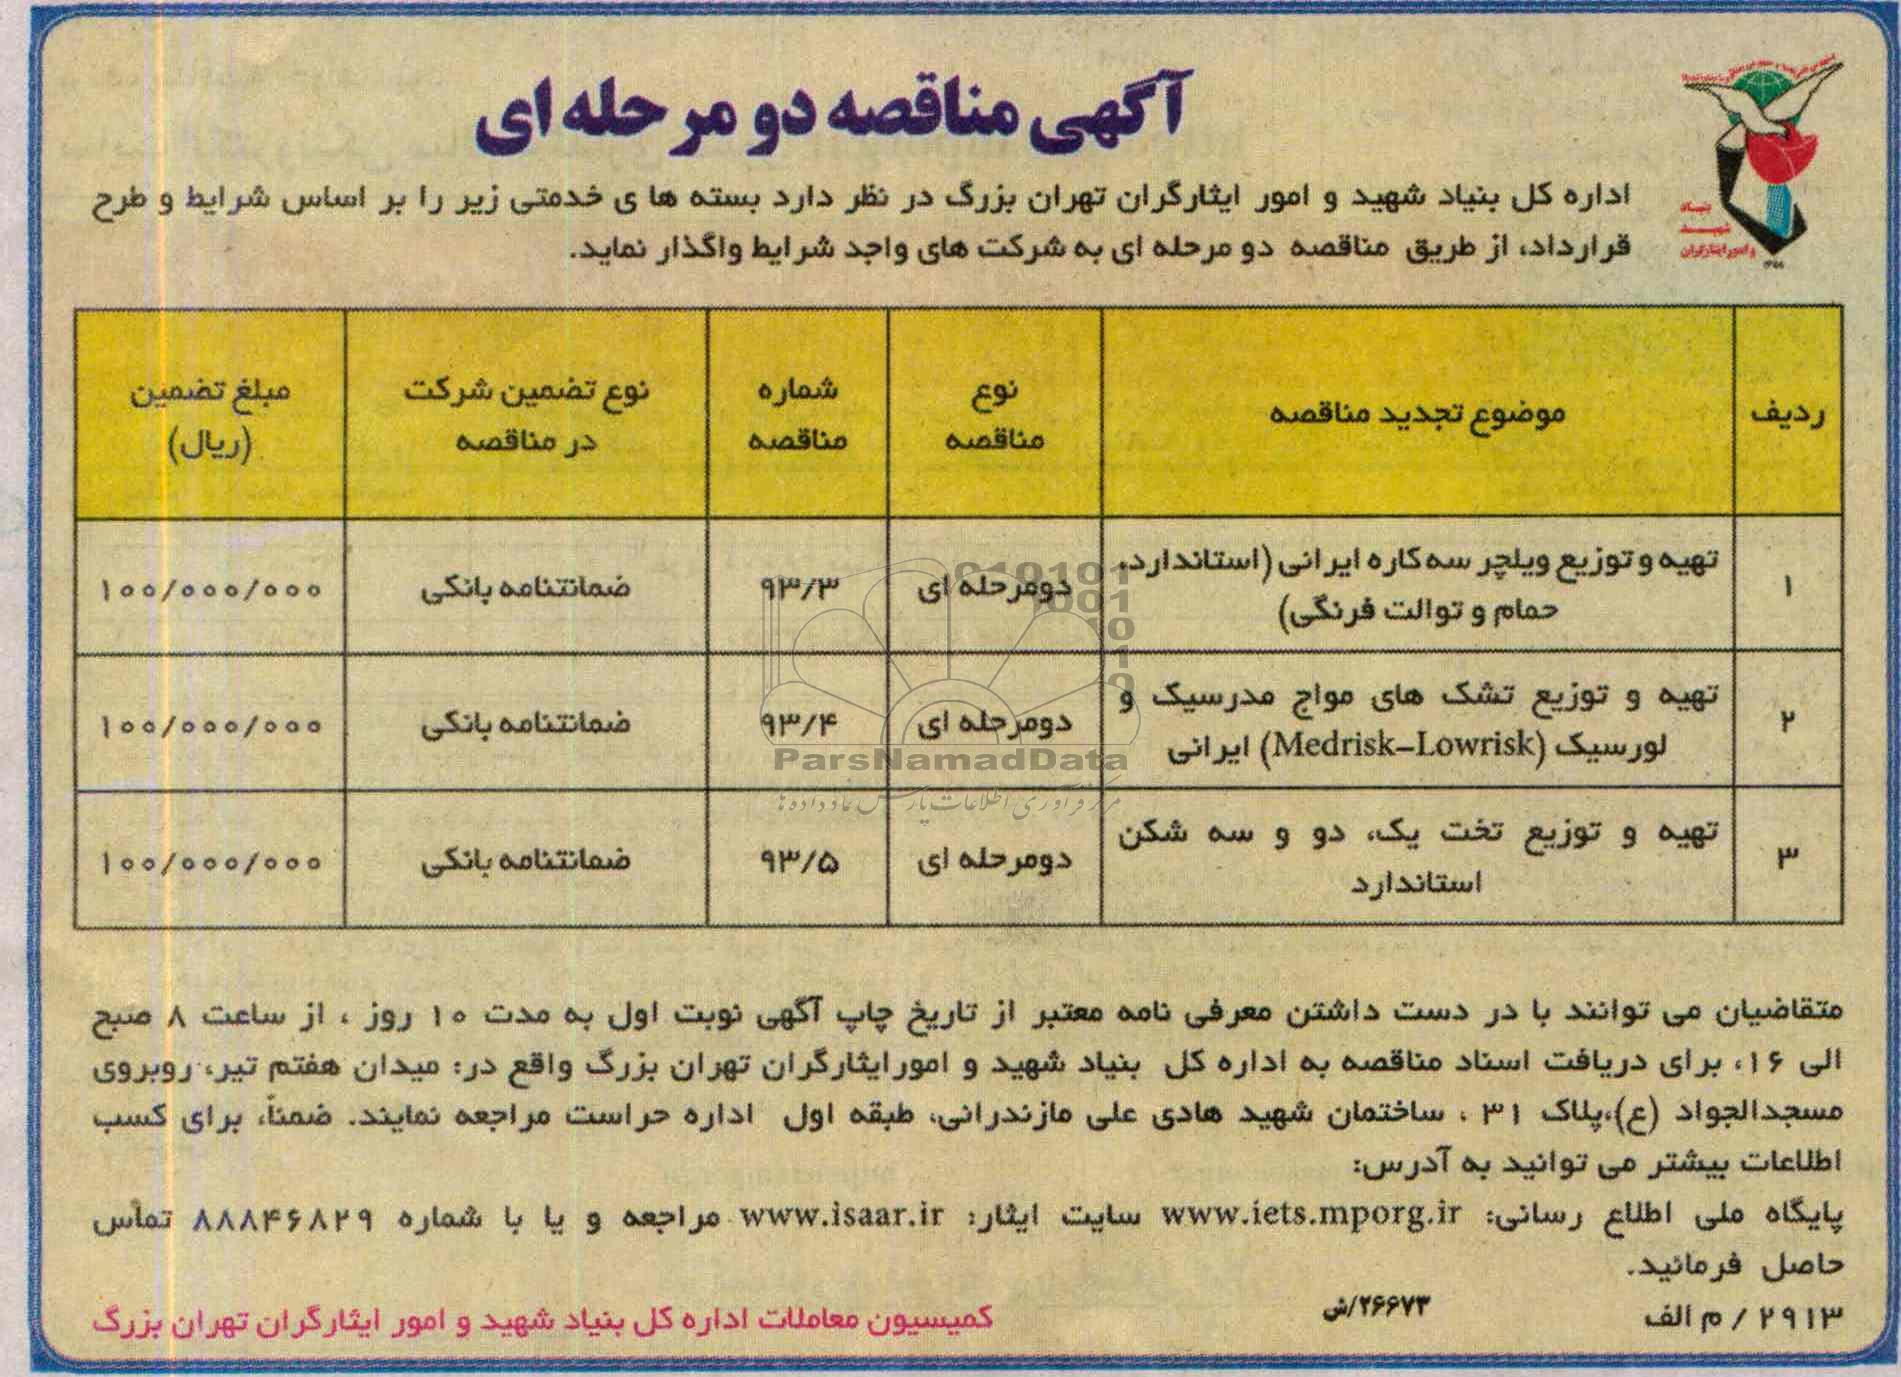 آگهی مناقصه دو مرحله ای
اداره کل بنیاد شهید و امور ایثارگران تهران بزرگ در نظر دارد بسته ها ی خدمتی زیر را بر اساس شرایط و طرح
قرارداد، از طریق مناقصه دو مرحله ای به شرکت های واجد شرایط واگذار نماید.
بنیاد
شهید
و امور ایثارگران
ردیف
موضوع تجدید مناقصه
نوع
مناقصه
شماره
مناقصه
نوع تضمین شرکت
در مناقصه
مبلغ تضمین
(ریال)
۱
تهیه و توزیع ویلچر سه کاره ایرانی (استاندارد،
حمام و توالت فرنگی)
دومرحله ای
۹۳/۳
ضمانتنامه بانکی
۱۰۰/۰۰۰/۰۰۰
۲
تهیه و توزیع تشک های مواج مدرسیک و
لورسیک (Medrisk-Lowrisk) ایرانی
دومرحله ای
۹۳/۴
ضمانتنامه بانکی
۱۰۰/۰۰۰/۰۰۰
۳
تهیه و توزیع تخت یک، دو و سه شکن
استاندارد
دومرحله ای
۹۳/۵
ضمانتنامه بانکی
۱۰۰/۰۰۰/۰۰۰
ParsNamadData
مرکز فرآوری اطلاعات پارس نماد داده ها
متقاضیان می توانند با در دست داشتن معرفی نامه معتبر از تاریخ چاپ آگهی نوبت اول به مدت ۱۰ روز ، از ساعت ۸ صبح
الی ۱۶، برای دریافت اسناد مناقصه به اداره کل بنیاد شهید و امورایثارگران تهران بزرگ واقع در: میدان هفتم تیر، روبروی
مسجدالجواد (ع)،پلاک ۳۱ ، ساختمان شهید هادی علی مازندرانی، طبقه اول اداره حراست مراجعه نمایند. ضمناً، برای کسب
اطلاعات بیشتر می توانید به آدرس:
پایگاه ملی اطلاع رسانی: www.iets.mporg.ir سایت ایثار: www.isaar.ir مراجعه و یا با شماره ۸۸۸۴۶۸۲۹ تماس
حاصل فرمائید.
۲۹۱۳ / م الف
۲۶۶۷۳/ش
کمیسیون معاملات اداره کل بنیاد شهید و امور ایثارگران تهران بزرگ